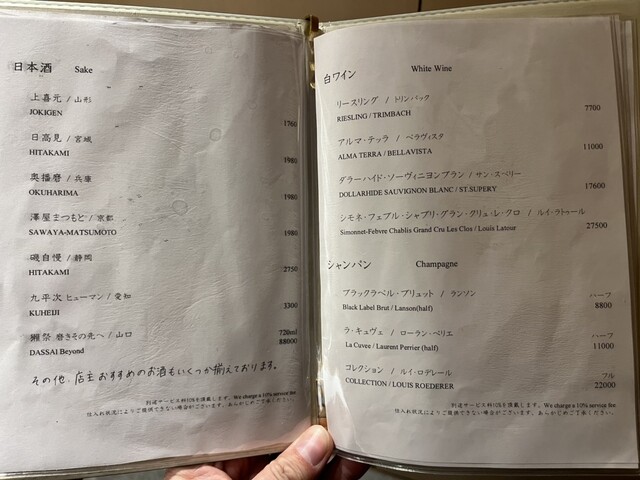 日本酒 Sake
上喜元 / 山形
JOKIGEN 1760
日高見 / 宮城
HITAKAMI 1980
奥播磨 / 兵庫
OKUHARIMA 1980
澤屋まつもと / 京都
SAWAYA-MATSUMOTO 1980
磯自慢 / 静岡
HITAKAMI 2750
九平次 ヒューマン / 愛知
KUHEIJI 3300
獺祭 磨きその先へ / 山口 720ml
DASSAI Beyond 88000
その他、店主おすすめのお酒もいくつか揃えております。
別途サービス料10%を頂戴します。We charge a 10% service fee.
仕入れ状況によりご提供できない場合がございます。あらかじめご了承ください。
白ワイン White Wine
リースリング / トリンバック
RIESLING / TRIMBACH 7700
アルマ・テッラ / ベラヴィスタ
ALMA TERRA / BELLAVISTA 11000
ダラーハイド・ソーヴィニヨンブラン / サン・スペリー
DOLLARHIDE SAUVIGNON BLANC / ST.SUPERY 17600
シモネ・フェブル・シャブリ・グラン・クリュ・レ・クロ / ルイ・ラトゥール
Simonnet-Febvre Chablis Grand Cru Les Clos / Louis Latour 27500
シャンパン Champagne
ブラックラベル・ブリュット / ランソン ハーフ
Black Label Brut / Lanson(half) 8800
ラ・キュヴェ / ローラン・ペリエ ハーフ
La Cuvee / Laurent Perrier (half) 11000
コレクション / ルイ・ロデレール フル
COLLECTION / LOUIS ROEDERER 22000
別途サービス料10%を頂戴します。We charge a 10% service fee.
仕入れ状況によりご提供できない場合がございます。あらかじめご了承ください。